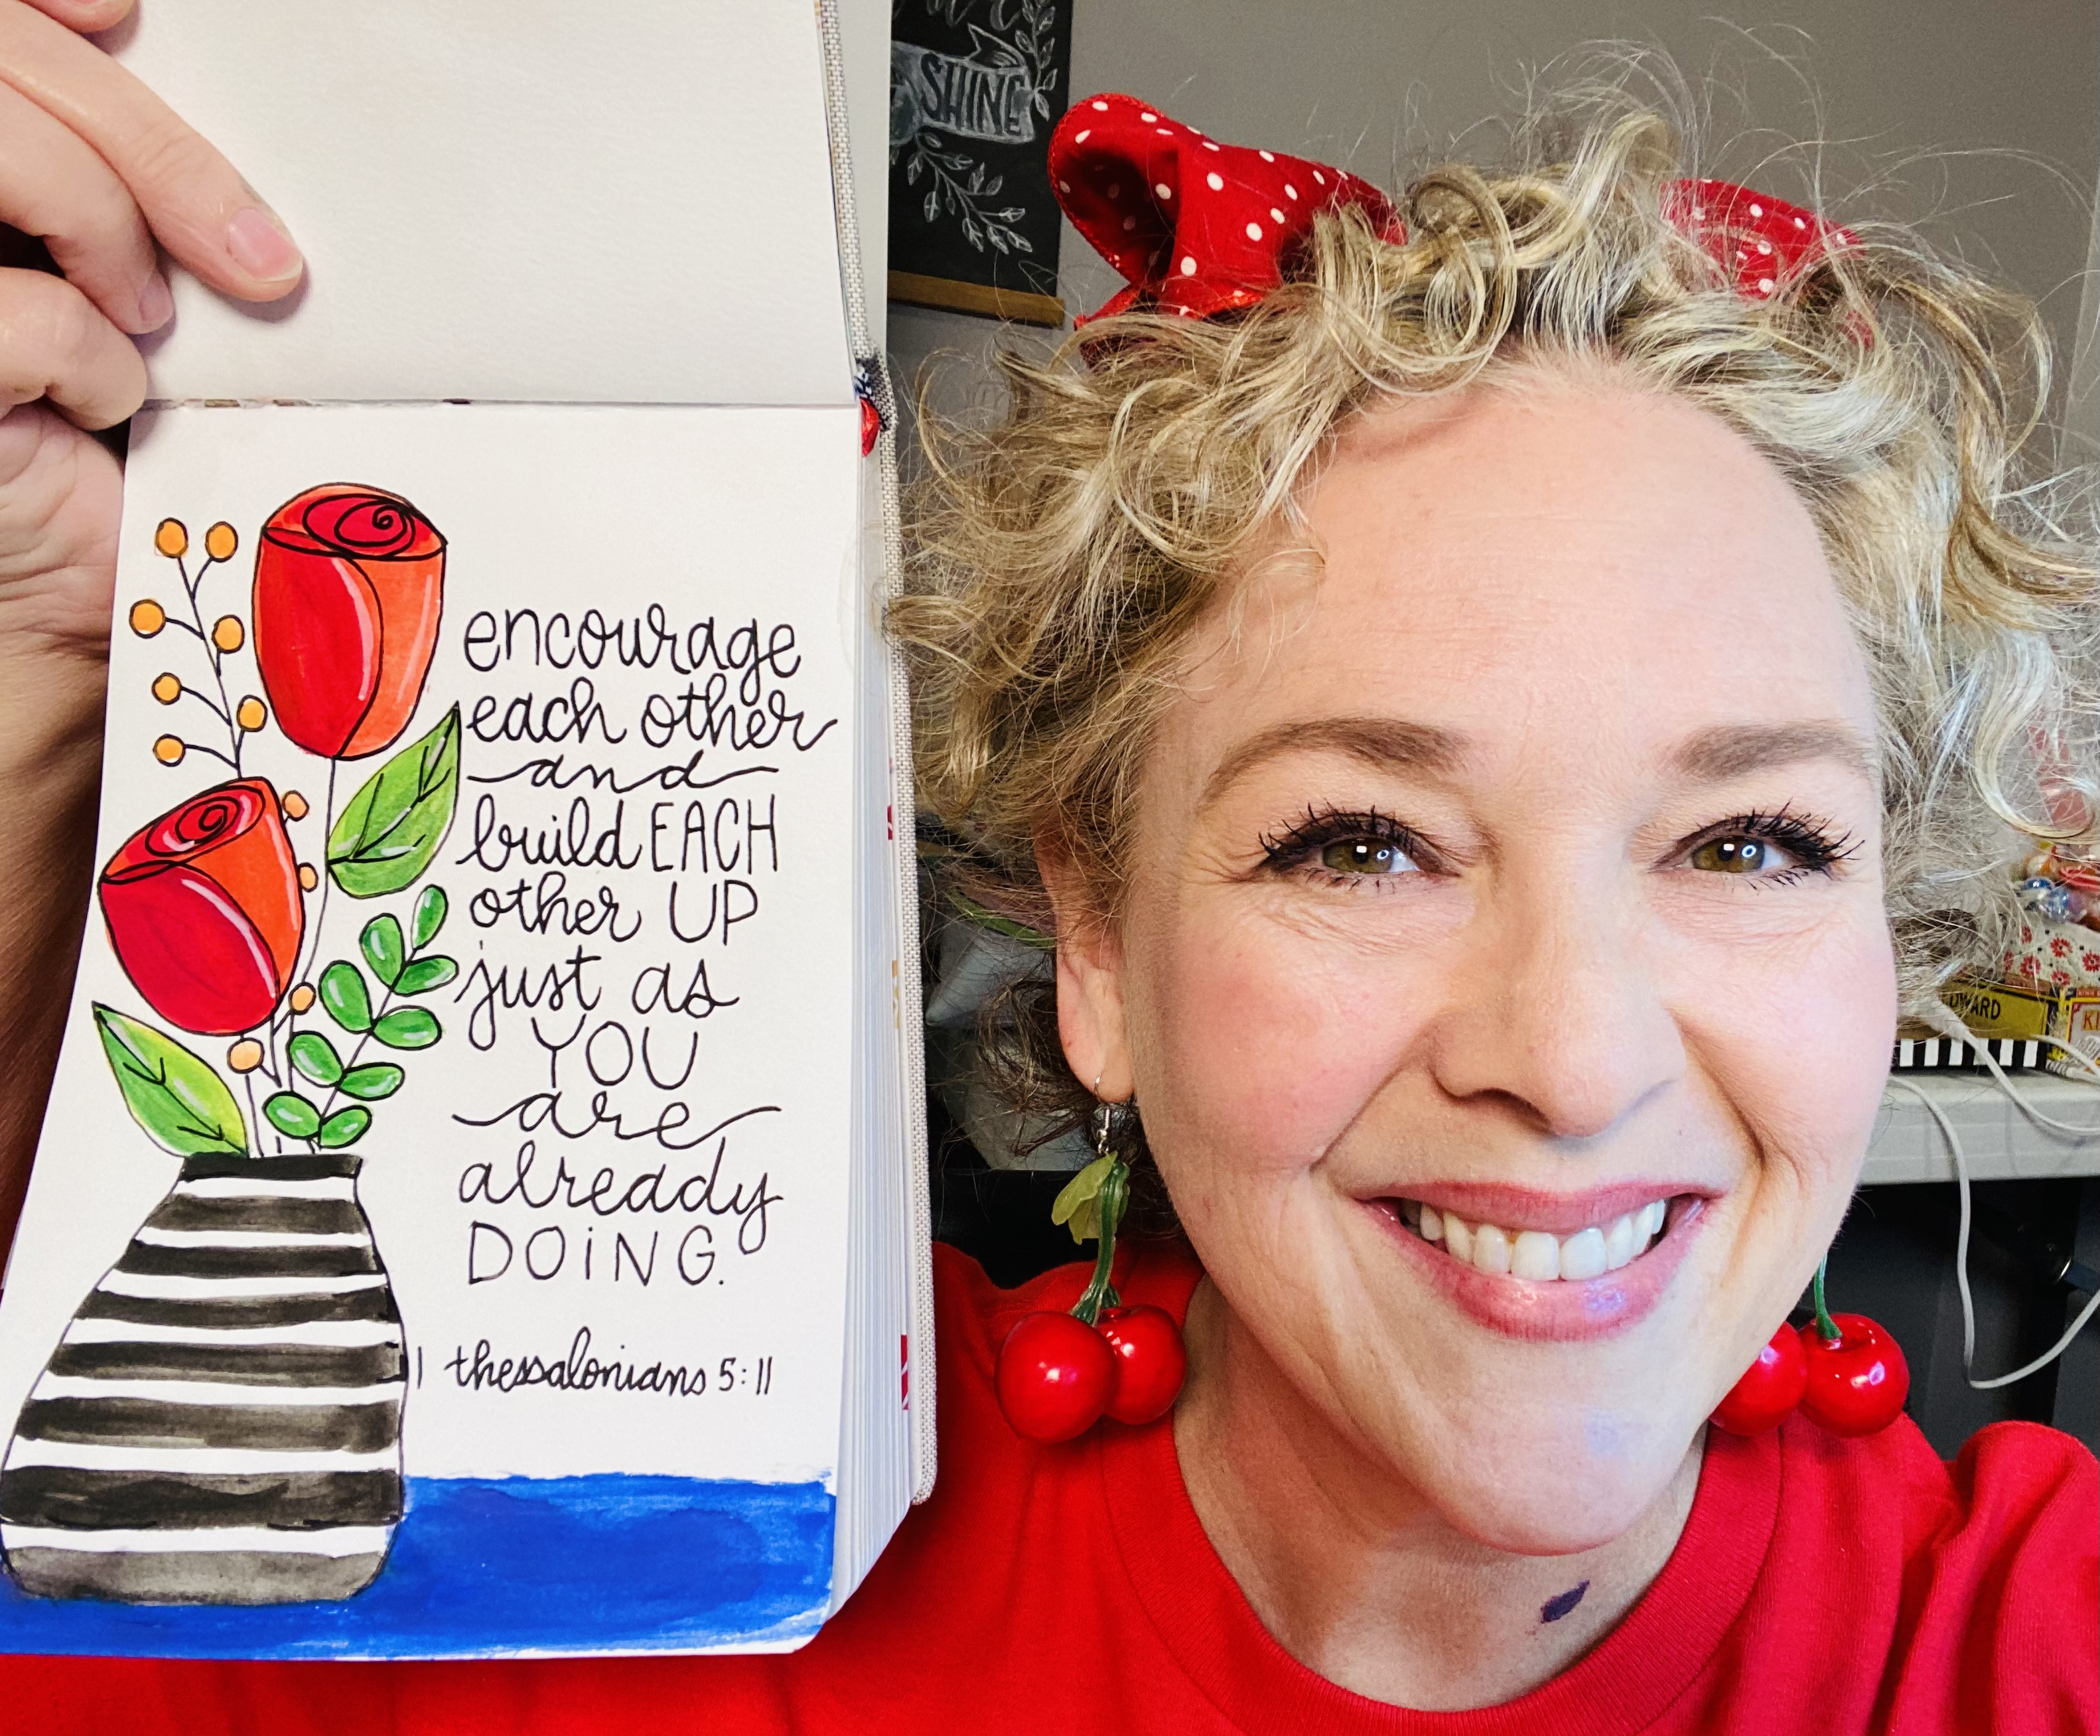 SHINE
encourage
each other
and
build EACH
other UP
just as
YOU
are
already
DOiNG.
1 thessalonians 5:11